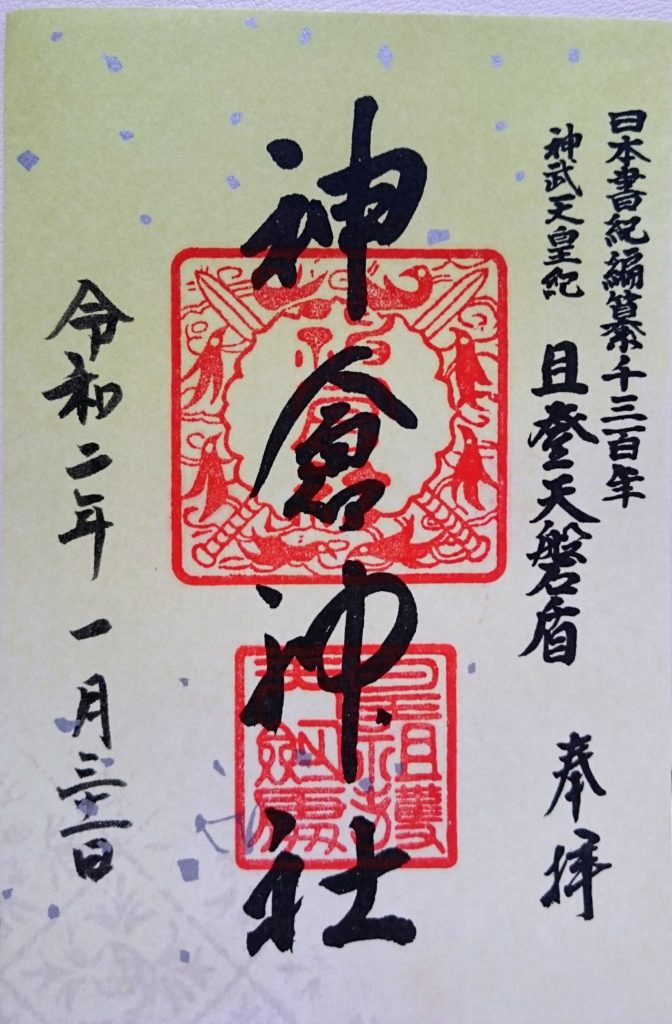 日本書紀編纂千三百年
神武天皇紀 且登天磐盾 奉拝
神倉神社
令和二年一月三十一日